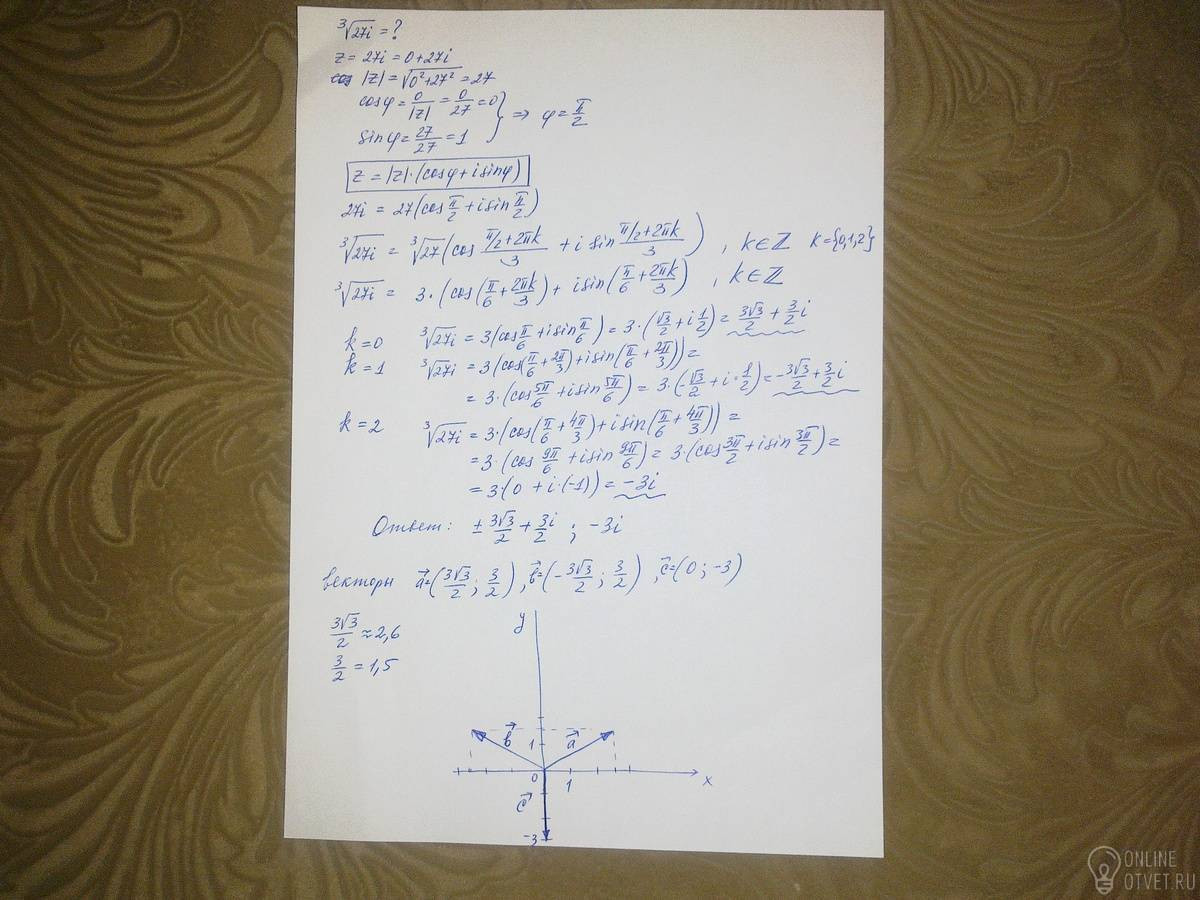 ∛27i = ?
z = 27i = 0 + 27i
|z| = √(0² + 27²) = 27
cosφ = 0/|z| = 0/27 = 0
sinφ = 27/27 = 1 } ⇒ φ = π/2
z = |z|·(cosφ + i sinφ)
27i = 27(cos π/2 + i sin π/2)
∛27i = ∛27(cos (π/2+2πk)/3 + i sin (π/2+2πk)/3) , k∈ℤ k={0,1,2}
∛27i = 3·(cos(π/6 + 2πk/3) + i sin(π/6 + 2πk/3) , k∈ℤ
k=0 ∛27i = 3(cos π/6 + i sin π/6) = 3·(√3/2 + i 1/2) = 3√3/2 + 3/2 i
k=1 ∛27i = 3(cos(π/6 + 2π/3) + i sin(π/6 + 2π/3)) =
= 3·(cos 5π/6 + i sin 5π/6) = 3·(-√3/2 + i·1/2) = -3√3/2 + 3/2 i
k=2 ∛27i = 3·(cos(π/6 + 4π/3) + i sin(π/6 + 4π/3)) =
= 3·(cos 9π/6 + i sin 9π/6) = 3·(cos 3π/2 + i sin 3π/2) =
= 3·(0 + i·(-1)) = -3i
Ответ: ± 3√3/2 + 3i/2 ; -3i
векторы a⃗=(3√3/2 ; 3/2), в⃗=(-3√3/2 ; 3/2) , c⃗=(0 ; -3)
3√3/2 ≈ 2,6
3/2 = 1,5
y
в⃗ 1 a⃗
0 1 x
c⃗
-3
ONLINE
OTVET.RU